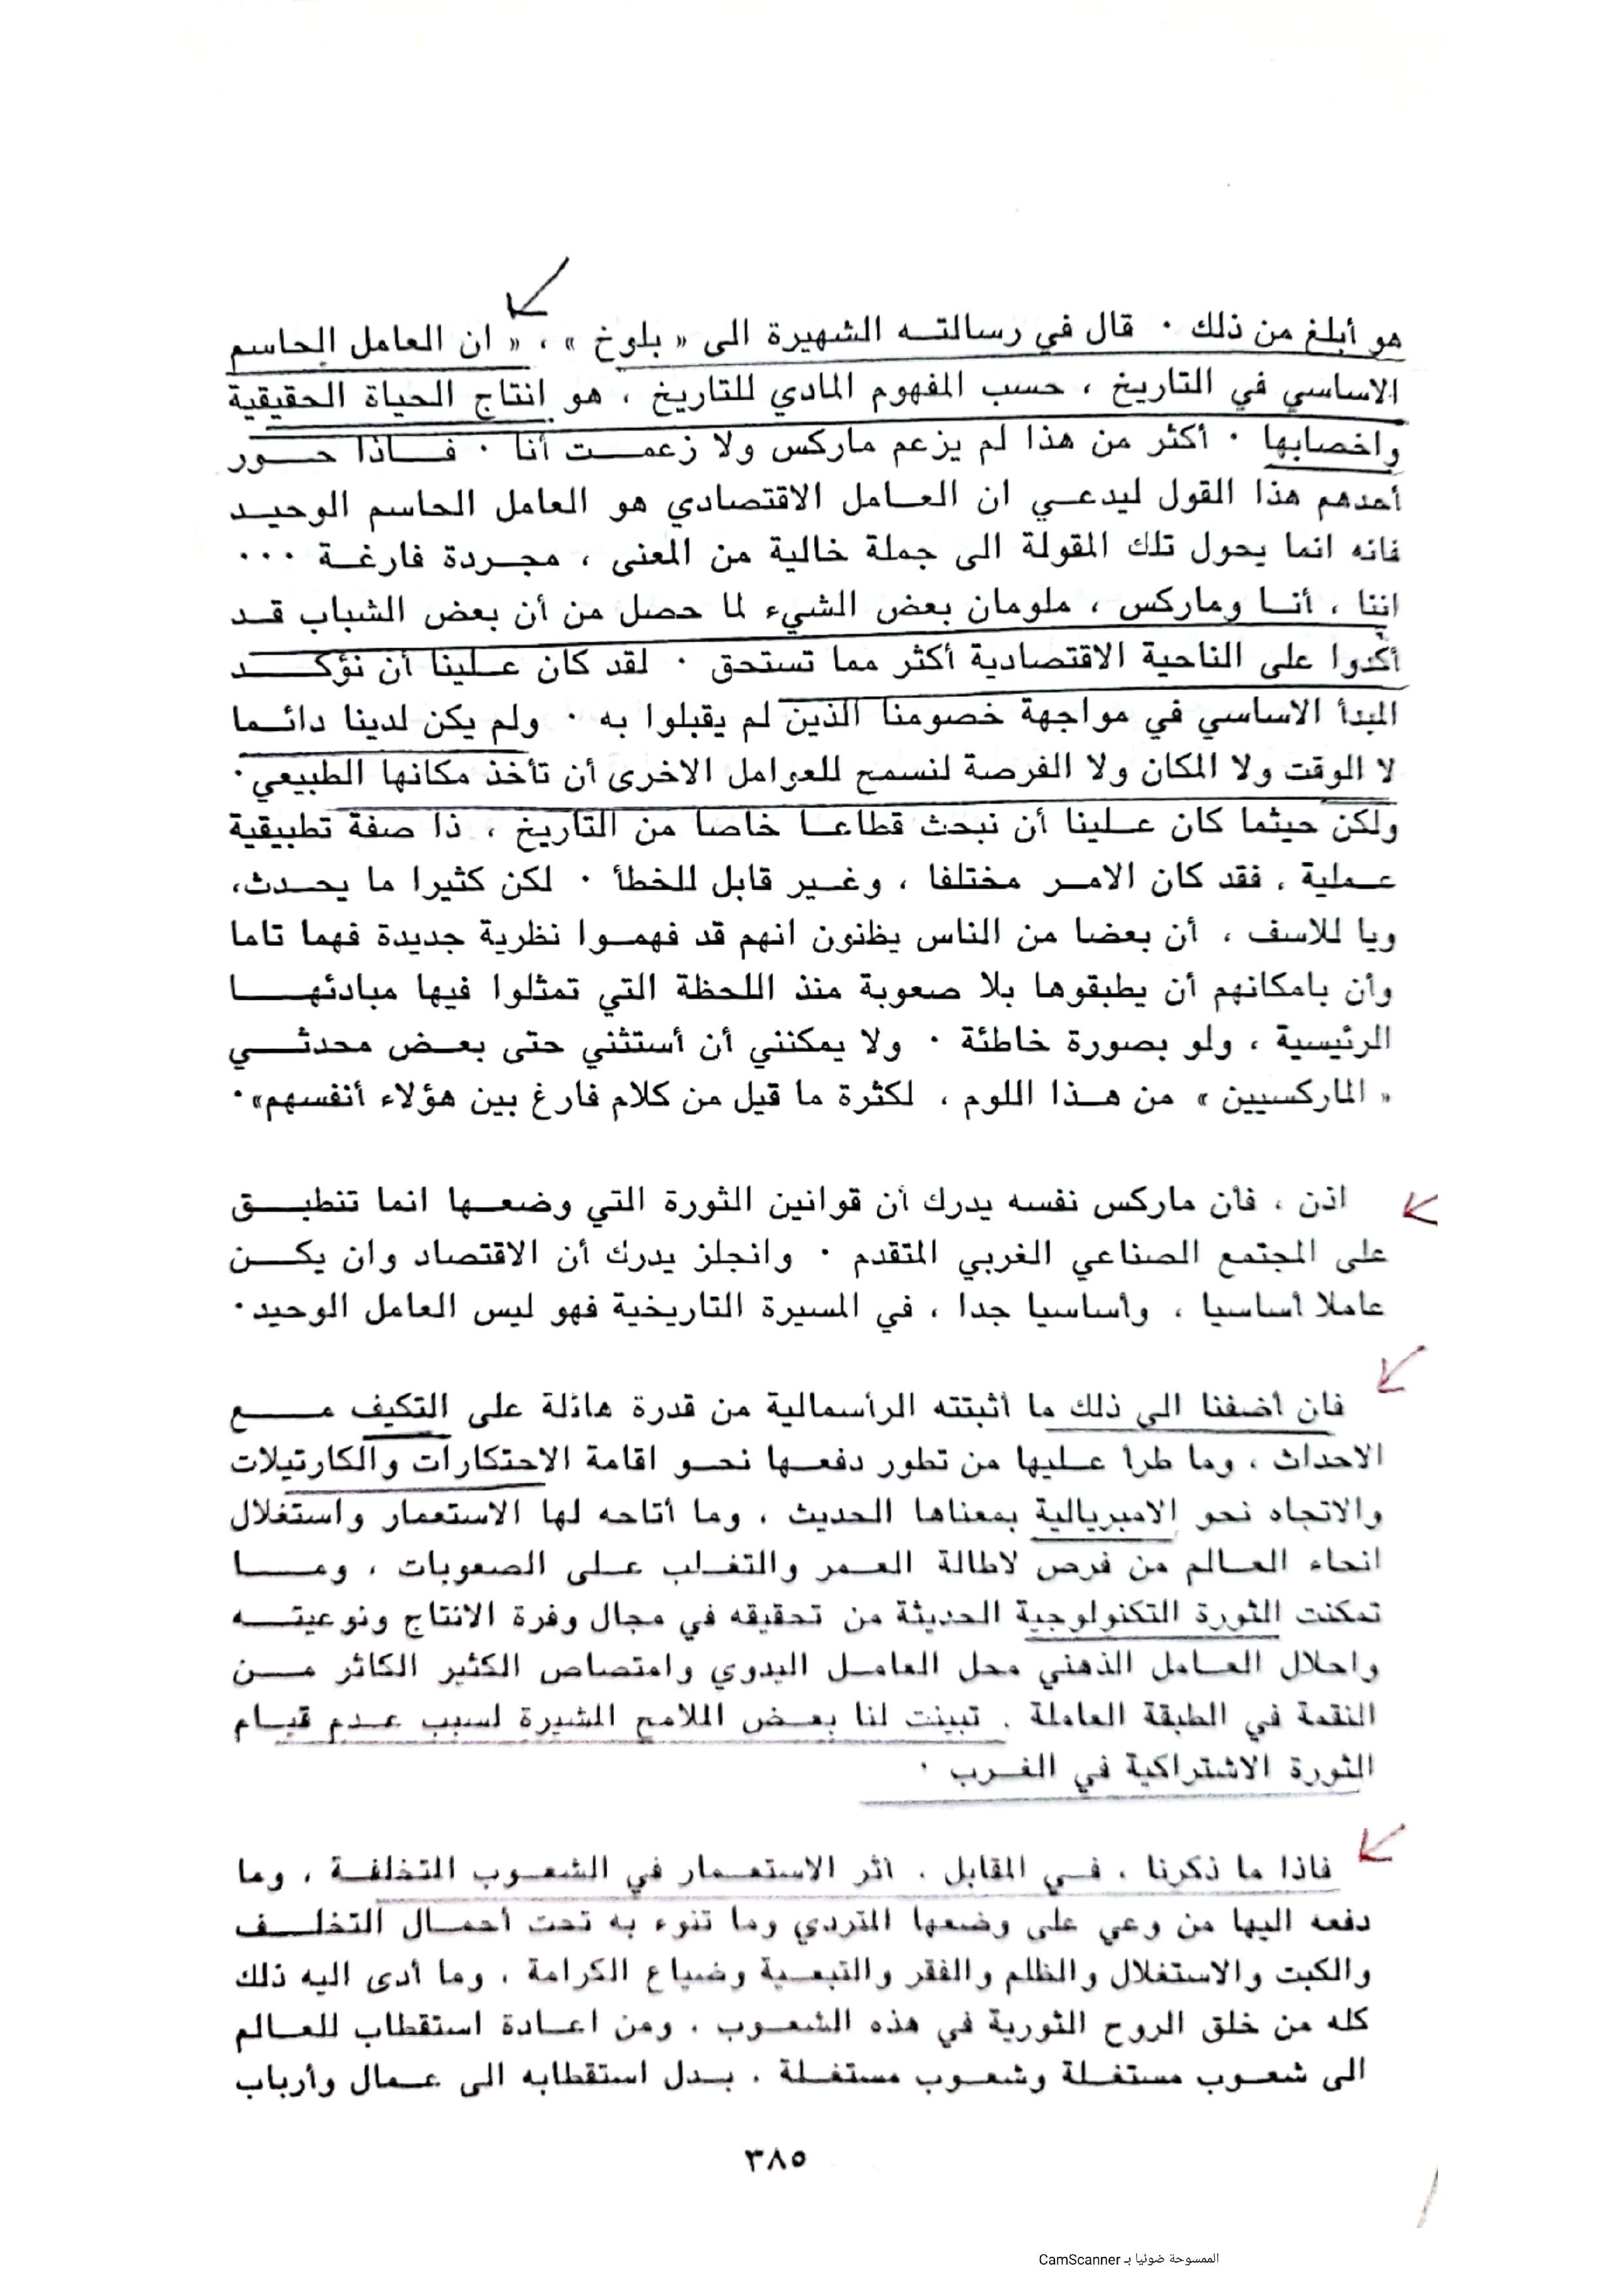 هو أبلغ من ذلك ٠ قال في رسالته الشهيرة الى « بلوخ » ، « ان العامل الحاسم
الاساسي في التاريخ ، حسب المفهوم المادي للتاريخ ، هو انتاج الحياة الحقيقية
واخصابها ٠ أكثر من هذا لم يزعم ماركس ولا زعمت أنا ٠ فاذا حور
أحدهم هذا القول ليدعي ان العامل الاقتصادي هو العامل الحاسم الوحيد
فانه انما يحول تلك المقولة الى جملة خالية من المعنى ، مجردة فارغة ٠٠٠
اننا ، أنا وماركس ، ملومان بعض الشيء لما حصل من أن بعض الشباب قد
أكدوا على الناحية الاقتصادية أكثر مما تستحق ٠ لقد كان علينا أن نؤكد
المبدأ الاساسي في مواجهة خصومنا الذين لم يقبلوا به ٠ ولم يكن لدينا دائما
لا الوقت ولا المكان ولا الفرصة لنسمح للعوامل الاخرى أن تأخذ مكانها الطبيعي٠
ولكن حيثما كان علينا أن نبحث قطاعا خاصا من التاريخ ، ذا صفة تطبيقية
عملية ، فقد كان الامر مختلفا ، وغير قابل للخطأ ٠ لكن كثيرا ما يحدث،
ويا للاسف ، أن بعضا من الناس يظنون انهم قد فهموا نظرية جديدة فهما تاما
وأن بامكانهم أن يطبقوها بلا صعوبة منذ اللحظة التي تمثلوا فيها مبادئها
الرئيسية ، ولو بصورة خاطئة ٠ ولا يمكنني أن أستثني حتى بعض محدثي
« الماركسيين » من هذا اللوم ، لكثرة ما قيل من كلام فارغ بين هؤلاء أنفسهم»٠
اذن ، فأن ماركس نفسه يدرك أن قوانين الثورة التي وضعها انما تنطبق
على المجتمع الصناعي الغربي المتقدم ٠ وانجلز يدرك أن الاقتصاد وان يكن
عاملا أساسيا ، وأساسيا جدا ، في المسيرة التاريخية فهو ليس العامل الوحيد٠
فان أضفنا الى ذلك ما أثبتته الرأسمالية من قدرة هائلة على التكيف مع
الاحداث ، وما طرأ عليها من تطور دفعها نحو اقامة الاحتكارات والكارتيلات
والاتجاه نحو الامبريالية بمعناها الحديث ، وما أتاحه لها الاستعمار واستغلال
انحاء العالم من فرص لاطالة العمر والتغلب على الصعوبات ، وما
تمكنت الثورة التكنولوجية الحديثة من تحقيقه في مجال وفرة الانتاج ونوعيته
واحلال العامل الذهني محل العامل اليدوي وامتصاص الكثير الكاثر من
النقمة في الطبقة العاملة ، تبينت لنا بعض الملامح المشيرة لسبب عدم قيام
الثورة الاشتراكية في الغرب ٠
فاذا ما ذكرنا ، في المقابل ، أثر الاستعمار في الشعوب التخلفة ، وما
دفعه اليها من وعي على وضعها المتردي وما تنوء به تحت أحمال التخلف
والكبت والاستغلال والظلم والفقر والتبعية وضياع الكرامة ، وما أدى اليه ذلك
كله من خلق الروح الثورية في هذه الشعوب ، ومن اعادة استقطاب للعالم
الى شعوب مستغلة وشعوب مستغلة ، بدل استقطابه الى عمال وأرباب
٣٨٥
الممسوحة ضوئيا بـ CamScanner